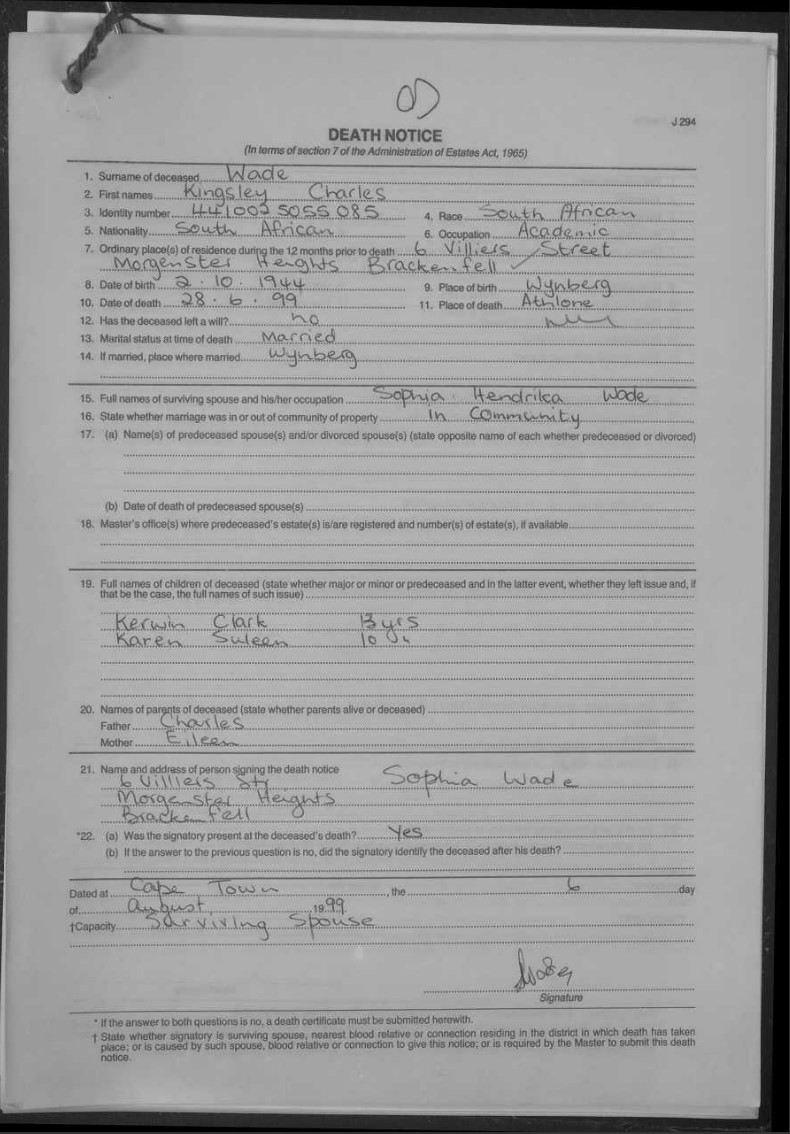 J 294
DEATH NOTICE
(In terms of section 7 of the Administration of Estates Act, 1965)
1. Surname of deceased Wade
2. First names Kingsley Charles
3. Identity number 441002 5055 085 4. Race South African
5. Nationality South African 6. Occupation Academic
7. Ordinary place(s) of residence during the 12 months prior to death 6 Villiers Street
Morgenster Heights Brackenfell
8. Date of birth 2.10.1944 9. Place of birth Wynberg
10. Date of death 28.6.99 11. Place of death Athlone
12. Has the deceased left a will? no
13. Marital status at time of death Married
14. If married, place where married Wynberg
15. Full names of surviving spouse and his/her occupation Sophia Hendrika Wade
16. State whether marriage was in or out of community of property In Community
17. (a) Name(s) of predeceased spouse(s) and/or divorced spouse(s) (state opposite name of each whether predeceased or divorced)
(b) Date of death of predeceased spouse(s)
18. Master's office(s) where predeceased's estate(s) is/are registered and number(s) of estate(s), if available
19. Full names of children of deceased (state whether major or minor or predeceased and in the latter event, whether they left issue and, if
that be the case, the full names of such issue)
Kerwin Clark 13 yrs
Karen Suleen 10 "
20. Names of parents of deceased (state whether parents alive or deceased)
Father Charles
Mother Eileen
21. Name and address of person signing the death notice Sophia Wade
6 Villiers Str
Morgenster Heights
Brackenfell
*22. (a) Was the signatory present at the deceased's death? Yes
(b) If the answer to the previous question is no, did the signatory identify the deceased after his death?
Dated at Cape Town, the 6 day
of August 1999
†Capacity Surviving Spouse
Signature
* If the answer to both questions is no, a death certificate must be submitted herewith.
† State whether signatory is surviving spouse, nearest blood relative or connection residing in the district in which death has taken
place; or is caused by such spouse, blood relative or connection to give this notice; or is required by the Master to submit this death
notice.